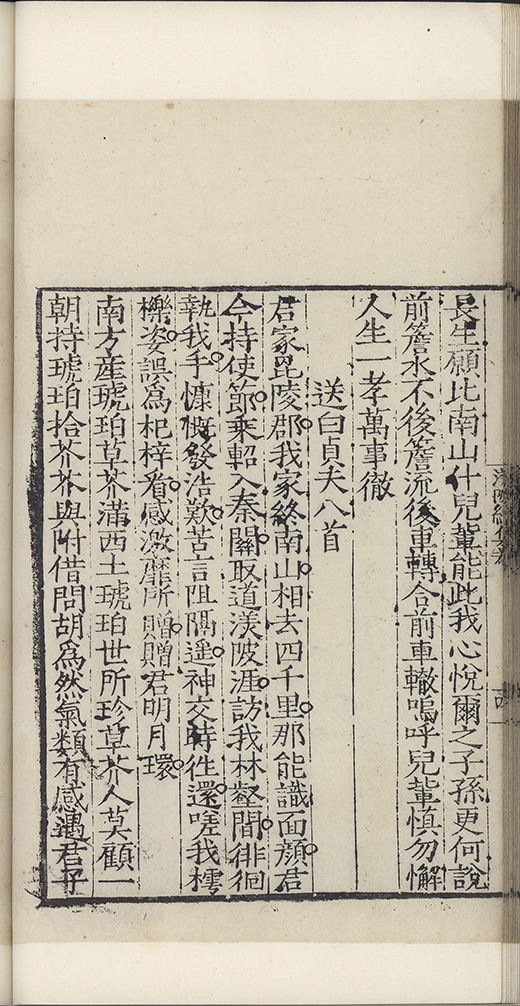 長生願比南山什兒輩能此我心悅爾之子孫更何說
前簷水不後簷流後車轉合前車轍嗚呼兒輩慎勿懈
人生一孝萬事徹
送白貞夫八首
君家毘陵郡我家終南山相去四千里那能識面顏君
今持使節乘軺入秦關取道渼陂涯訪我林壑間徘徊
執我手慷慨發浩歎苦言阻隔遥神交時徃還嗟我樗
櫟姿誤為杞梓看感激靡所贈贈君明月環
南方產琥珀草芥滿西土琥珀世所珍草芥人莫顧一
朝持琥珀拾芥芥與附借問胡為然氣類有感遇君子